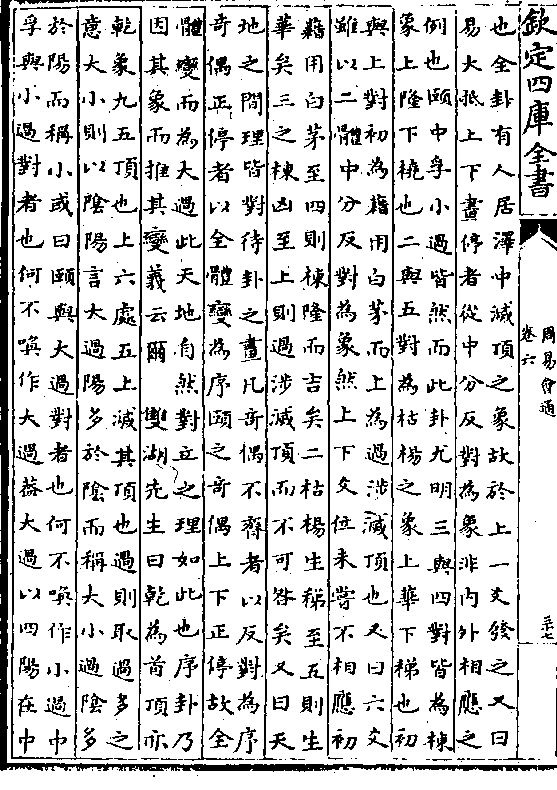 欽定四庫全書
周易會通
卷六
三十七
也全卦有人居澤中滅頂之象故於上一爻發之又曰
易大抵上下畫停者從中分反對為象非内外相應之
例也頤中孚小過皆然而此卦尤明三與四對皆為棟
象上隆下橈也二與五對為枯楊之象上華下稊也初
與上對初為藉用白茅而上為過涉滅頂也又曰六爻
雖以二體中分反對為象然上下爻位未嘗不相應初
藉用白茅至四則棟隆而吉矣二枯楊生稊至五則生
華矣三之棟凶至上則過涉滅頂而不可咎矣又曰天
地之間理皆對待卦之畫凡奇偶不齊者以反對為序
奇偶正停者以全體變為序頤之奇偶上下正停故全
體變而為大過此天地自然對立之理如此也序卦乃
因其象而推其變義云爾　雙湖先生曰乾為首頂亦
乾象九五頂也上六處五上滅其頂也過則取過多之
意大小則以陰陽言大過陽多於陰而稱大小過陰多
於陽而稱小或曰頤與大過對者也何不喚作小過中
孚與小過對者也何不喚作大過葢大過以四陽在中